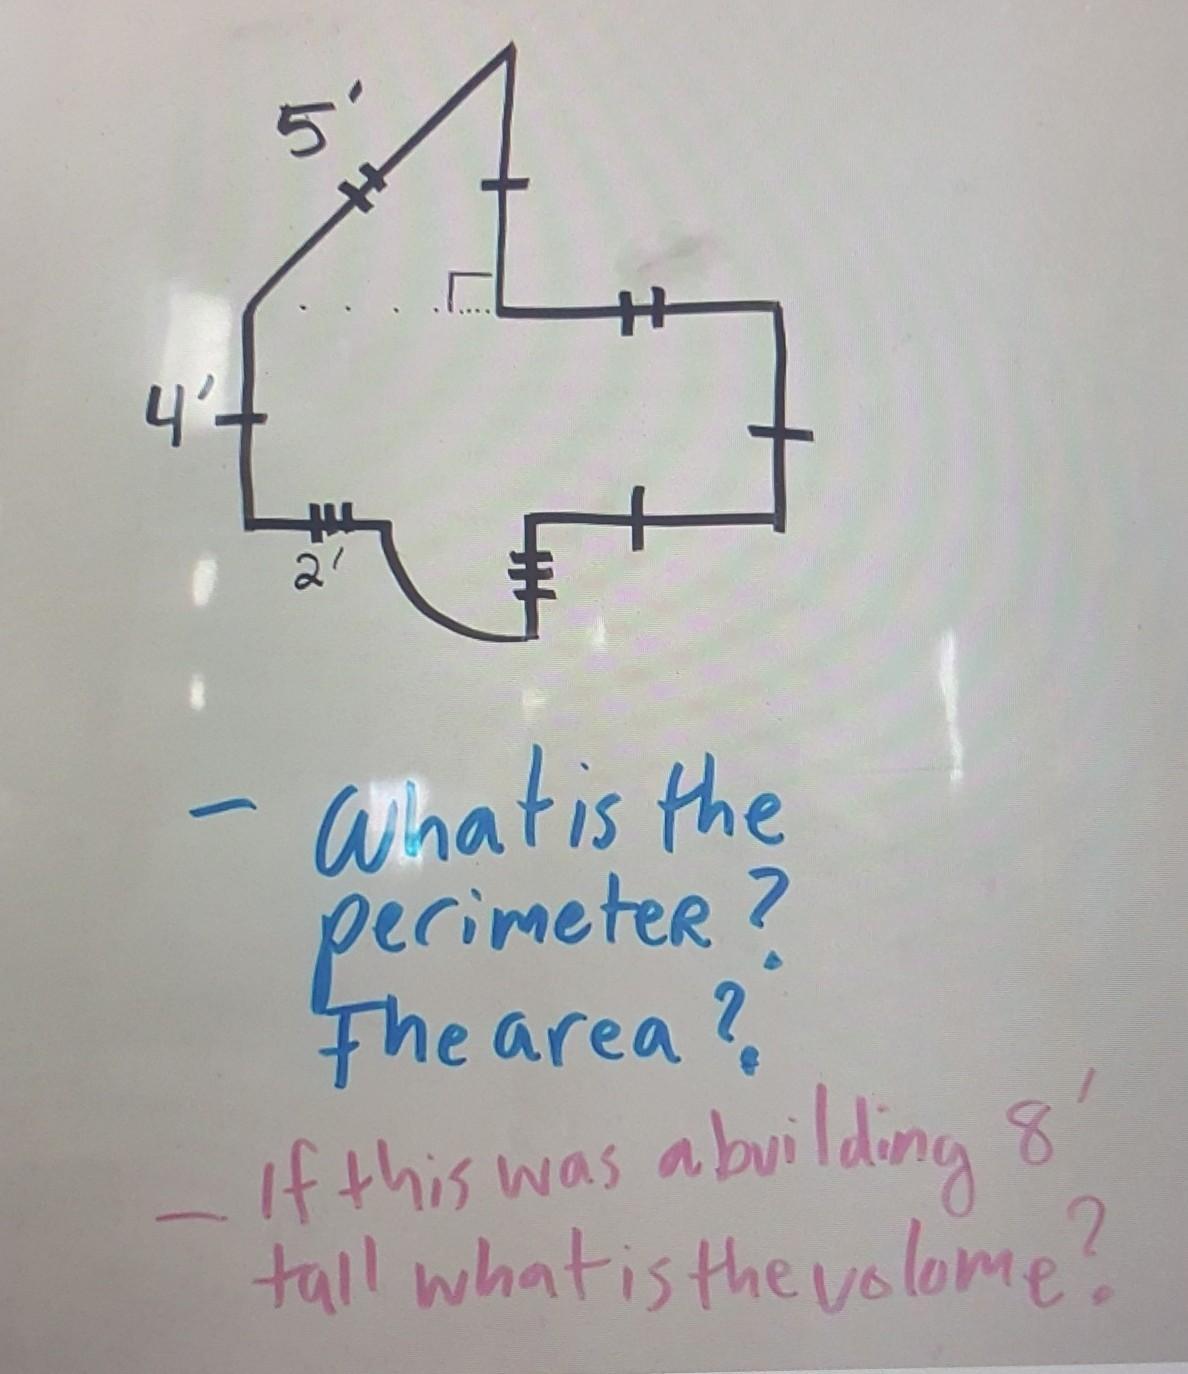 5'
4'
2'
- What is the
perimeter?
The area?
- If this was a building 8'
tall what is the volome?